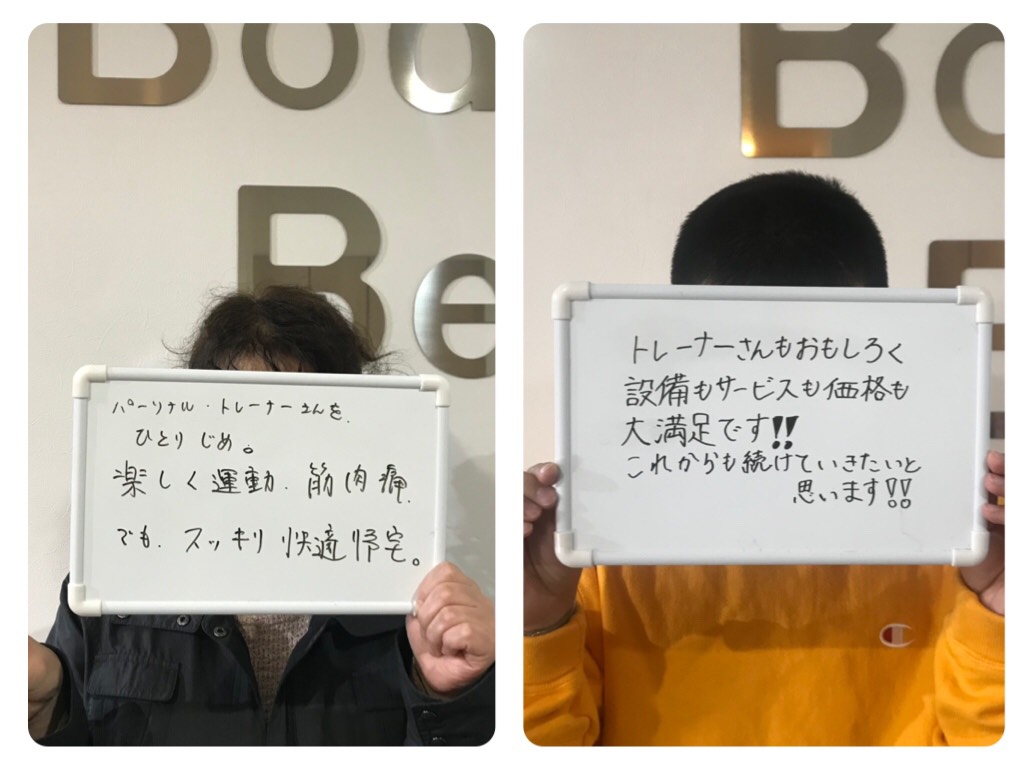 Bod
Be
パーソナル・トレーナーさんを、
ひとりじめ。
楽しく運動、筋肉痛、
でも、スッキリ快適帰宅。
Bo
トレーナーさんもおもしろく
設備もサービスも価格も
大満足です!!
これからも続けていきたいと
思います!!